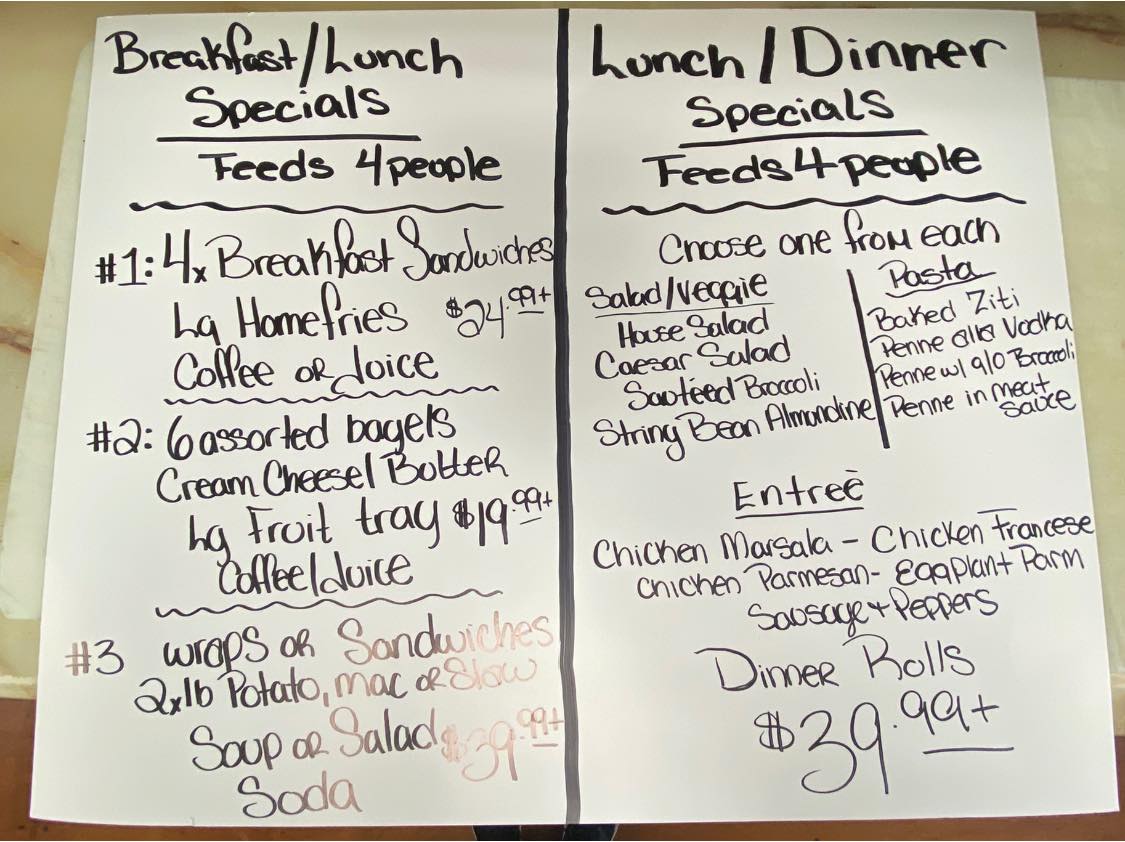 Breakfast/Lunch
Specials
Feeds 4 people
#1: 4x Breakfast Sandwiches
Lg Homefries $24.99+
Coffee or Juice
#2: 6 assorted bagels
Cream Cheese/Butter
Lg Fruit tray $19.99+
Coffee/Juice
#3 wraps or Sandwiches
2x1b Potato, mac or Slow
Soup or Salad $39.99+
Soda
Lunch/Dinner
Specials
Feeds 4 people
Choose one from each
Salad/Veggie
House Salad
Caesar Salad
Sautéed Broccoli
String Bean Almondine
Pasta
Baked Ziti
Penne alla Vodka
Penne w/ g/o Broccoli
Penne in meat
sauce
Entreè
Chicken Marsala - Chicken Francese
Chicken Parmesan - Eggplant Parm
Sausage + Peppers
Dinner Rolls
$39.99+